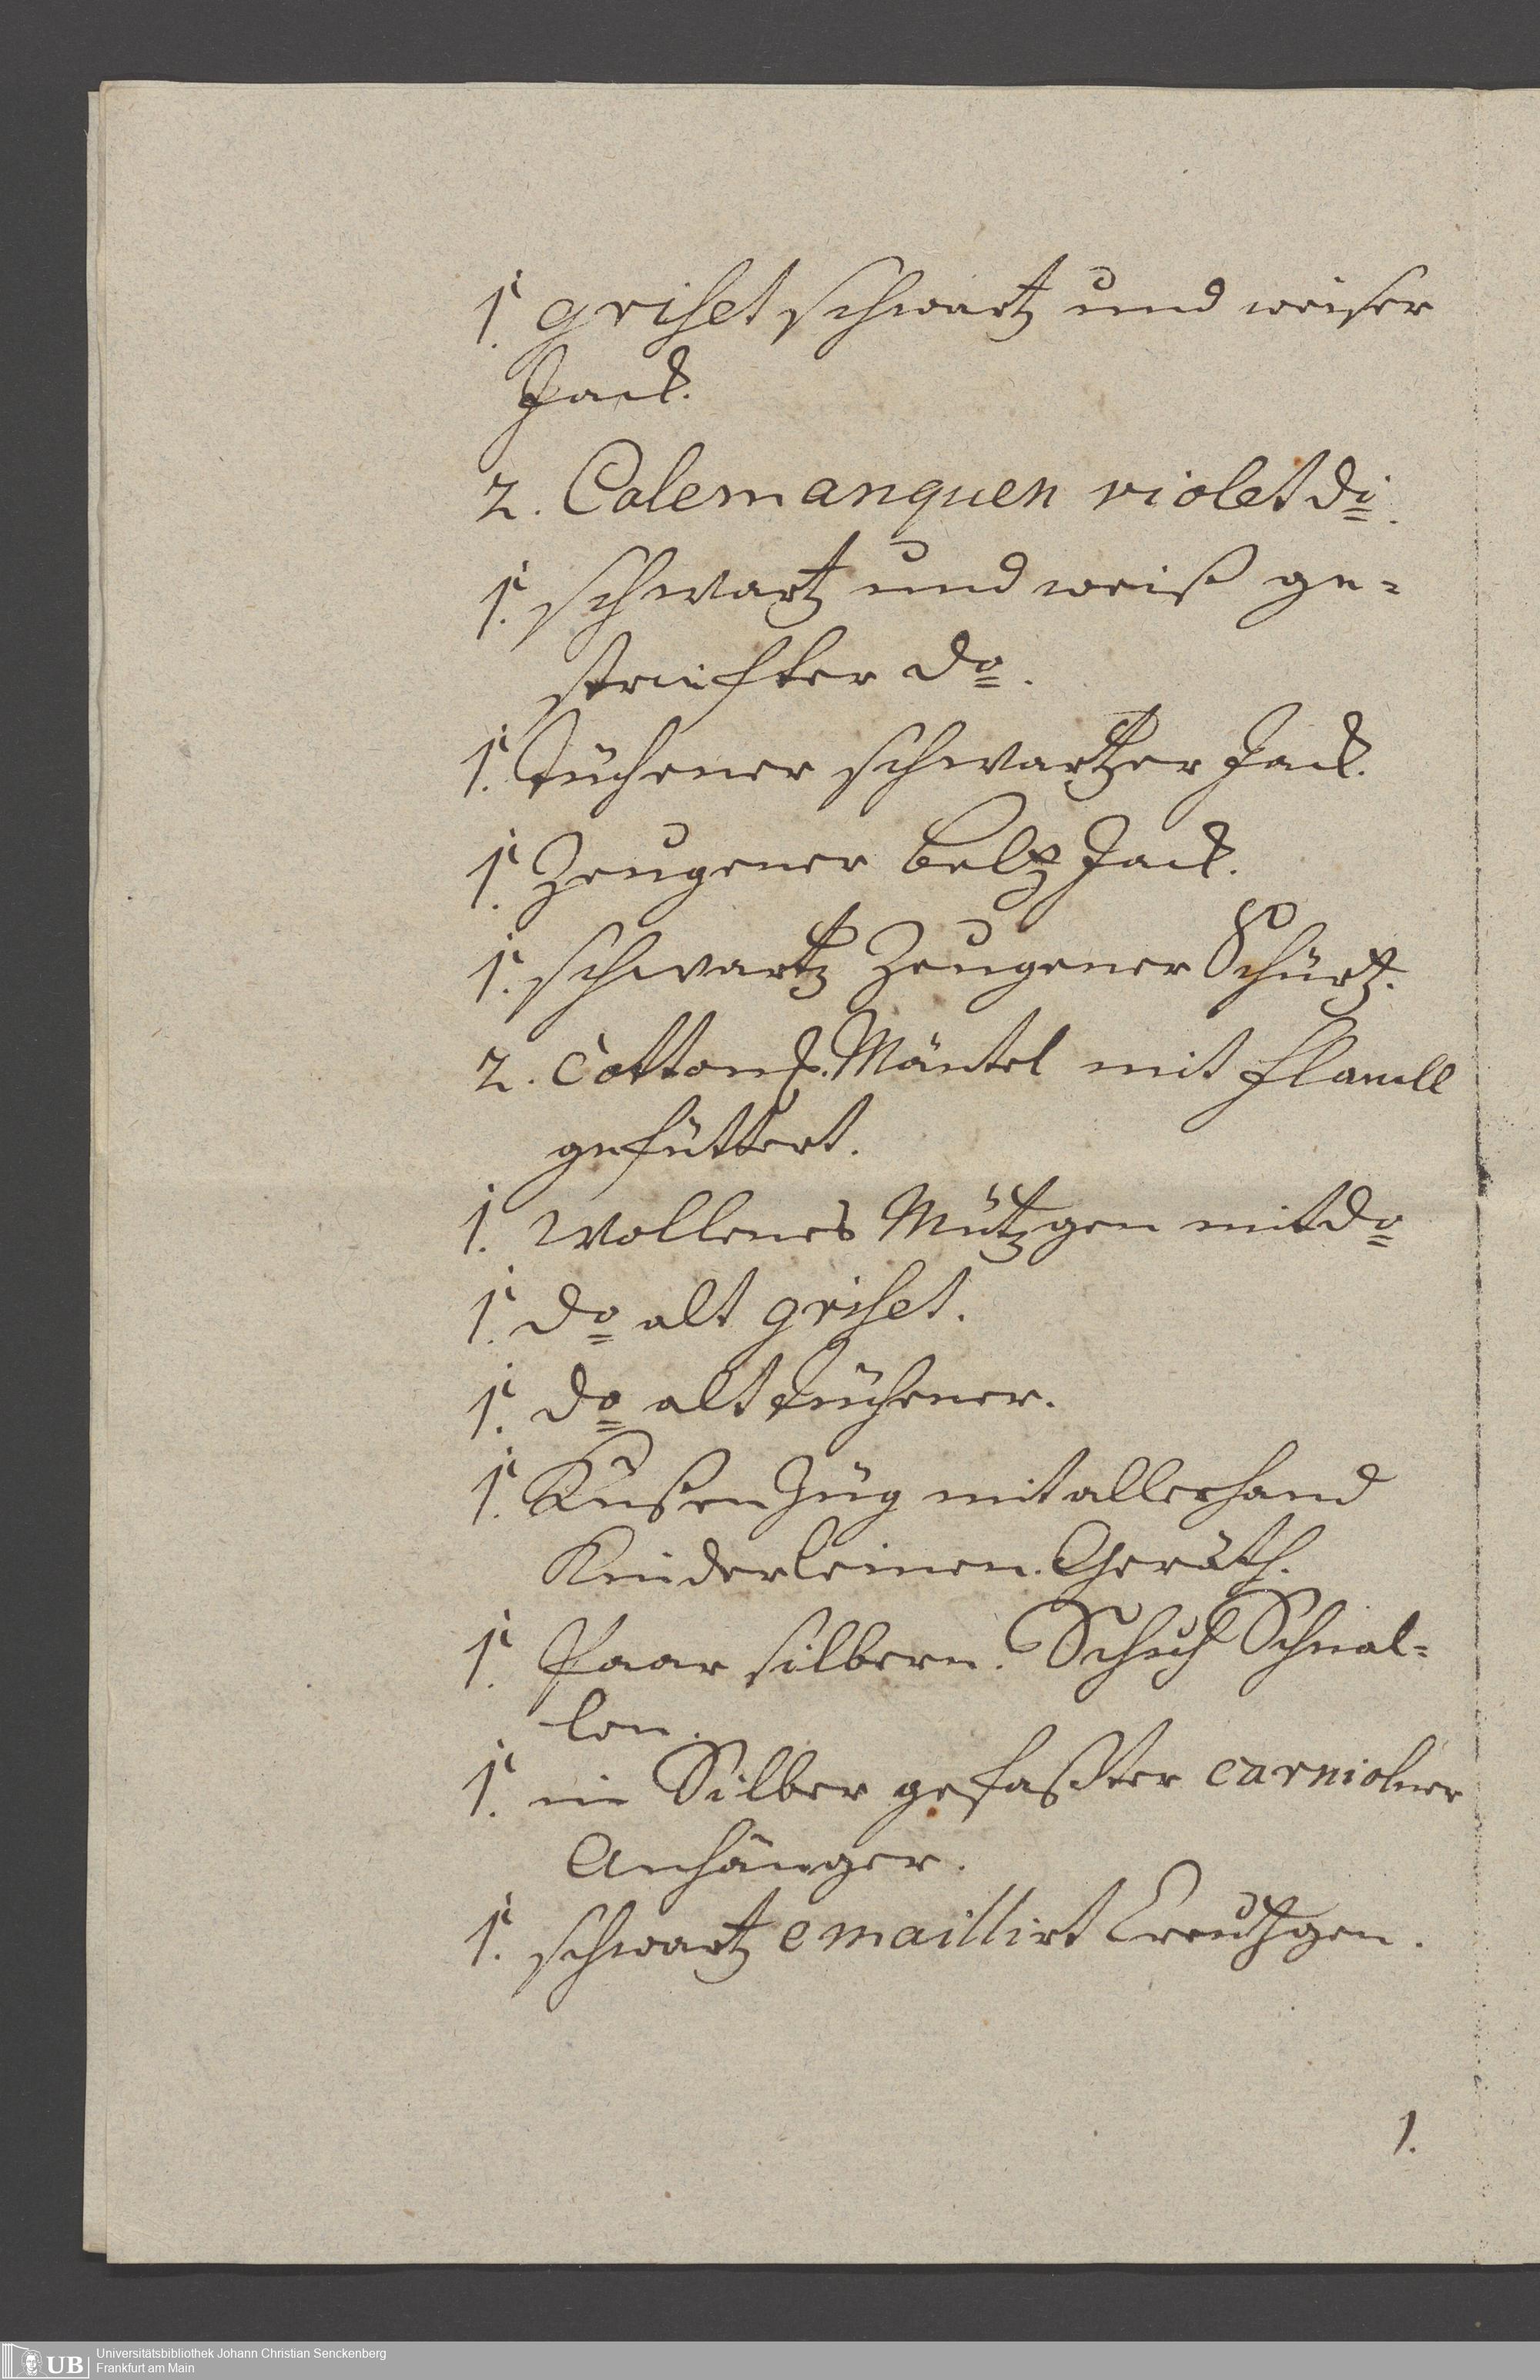 1. griset schwartz und weiser
Jack.
2. Calemanquen violet di.
1. schwartz und weiß ge=
streifter do.
1. Tüchener schwartzer Jack.
1. Zeugener belz Jack.
1. schwartz Zeugener Schürtz.
2. Cotton. Mäntel mit flanell
gefüttert.
1. Wollenes Mützgen mit do
1. do alt griset.
1. do alt tüchener.
1. Küßen Züg mit allerhand
Kinderleinen. Geräth.
1. Paar silbern. Schuh Schnal=
len.
1. in Silber gefaßter carniolner
Anhänger.
1. schwartz emaillirt Creutzgen.
1.
UB Universitätsbibliothek Johann Christian Senckenberg
Frankfurt am Main